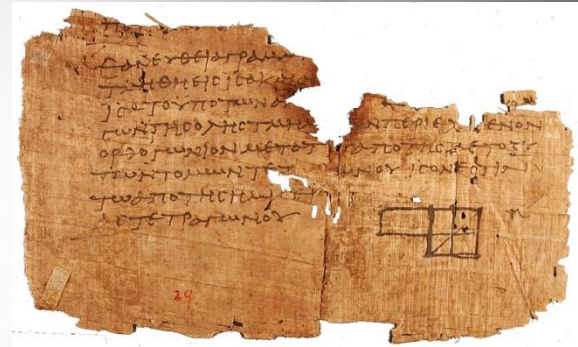 ΕΑΝΕΥΘΕΙΑΓΡΑΜΜ
ΤΜΗΘΗΕΙϹΙϹΑΚΑΙ
ΙϹΑΤΟΥΠΟΤωΝΑ
ΤωΝΤΗϹΟΛΗϹΤΜΗ ΝΠΕΡΙΕΧΟΜΕΝΟΝ
ΟΡΘΟΓωΝΙΟΝΜΕΤΟΤ ΑΠΟΤΗϹΜΕΤΟΞΥ
ΤωΝΤΟΜωΝΤΕΤ ωΝΟΥΙϹΟΝΕϹΤΙΝ
ΤωΑΠΟΤΗϹΗΜΙ
ΑϹΤΕΤΡΑΓωΝΟΥ
29